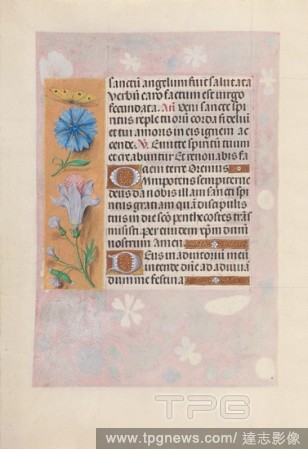 sanctū angelum fiue salutata
verbū caro factum est virgo
fecundata. An veni sancte spi
ritus reple tuorū corda fideliū
et tui amoris in eis ignem ac
cende. V. Emitte spiritū tuum
et creabuntur Et renouabis fa
ciem terre Oremus
Omnipotens sempiterne
deus da nobis illam sancti spi
ritus gratiam quā discipulis
tuis in die scō penthecostes trās
misisti. per eiusdem
nostrum amen
Deus in adiutoriū meū
intende dñe ad adiuuā
dum me festina
TPG
www.tpgnews.com/達志影像